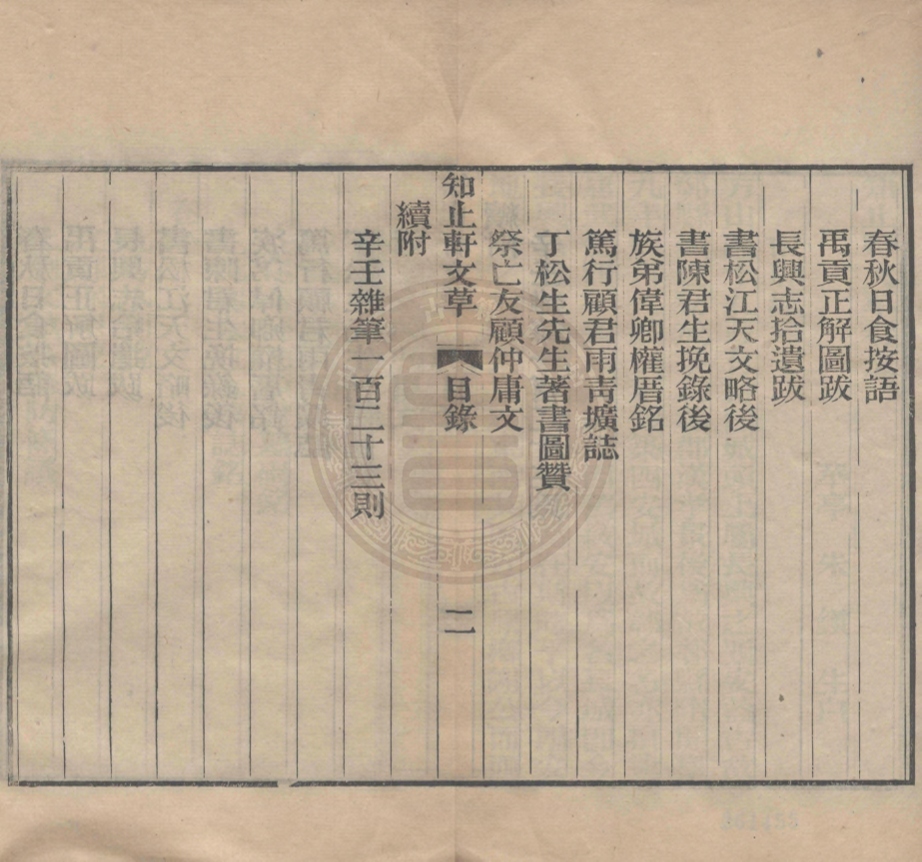 春秋日食按語
禹貢正解圖跋
長興志拾遺跋
書松江天文略後
書陳君生挽錄後
族弟偉卿權厝銘
篤行顧君雨靑壙誌
丁松生先生著書圖贊
祭亡友顧仲庸文
知止軒文草 目錄 二
續附
辛壬雜筆一百二十三則